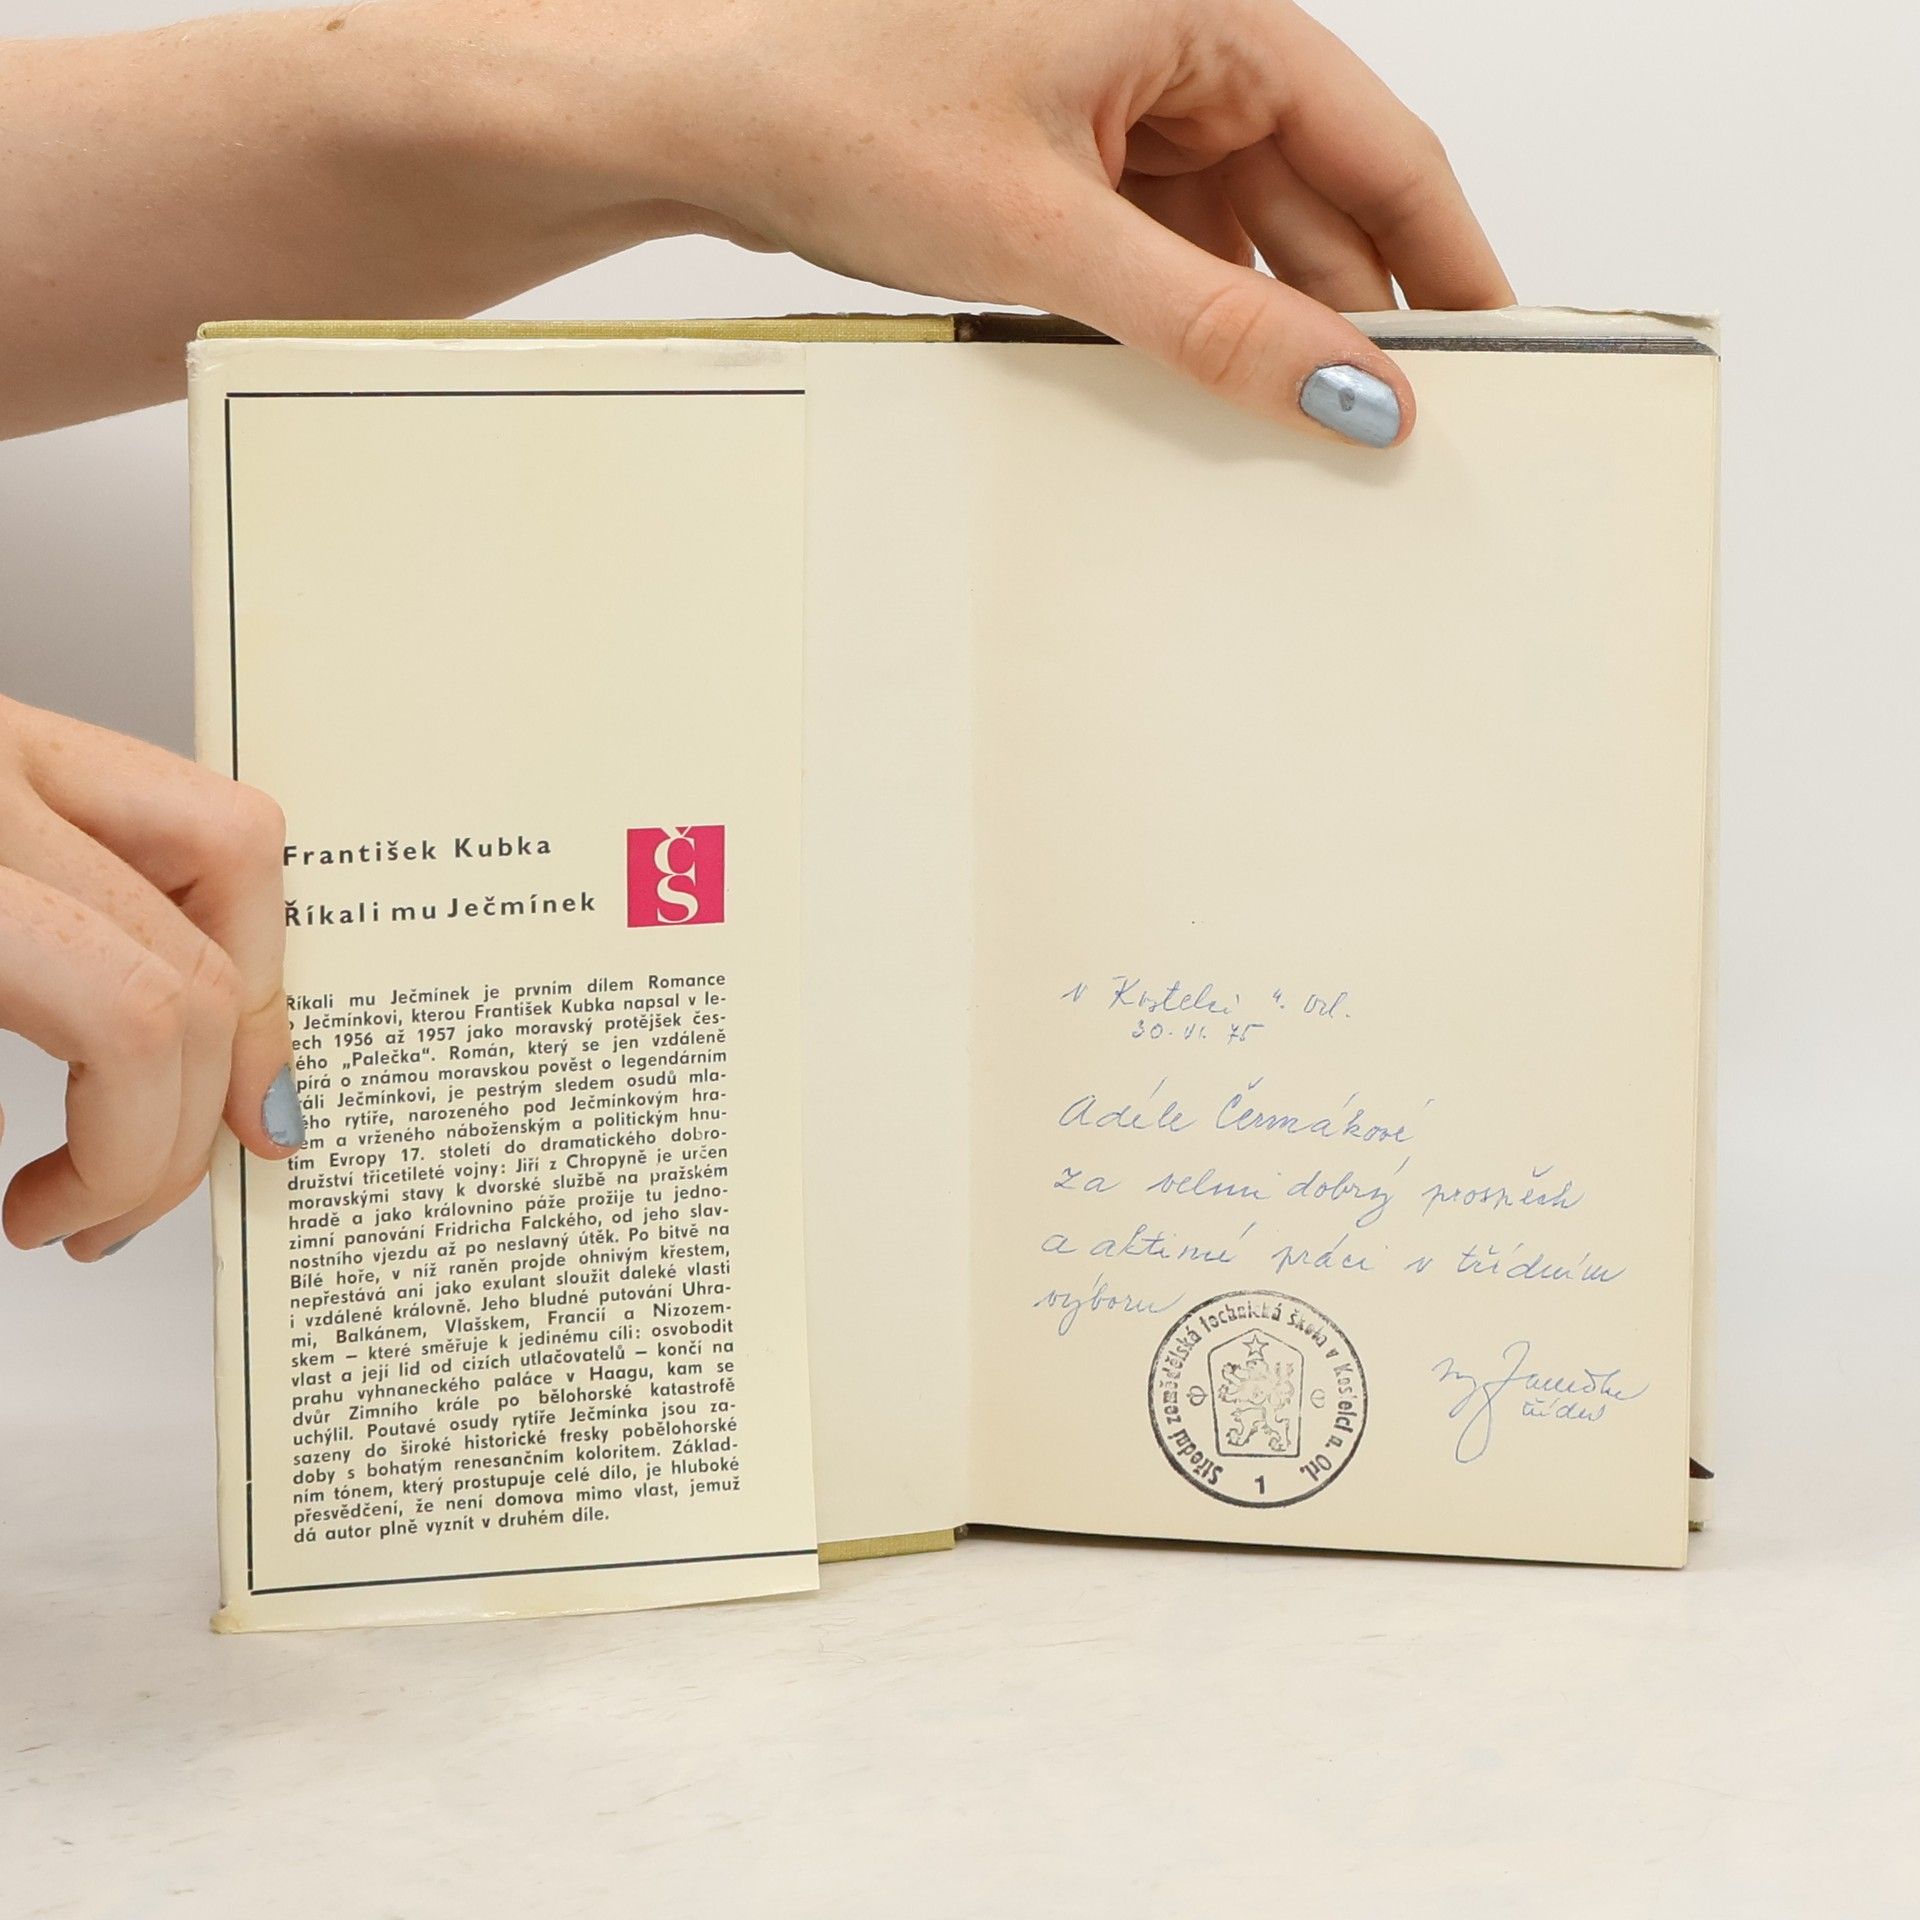 František Kubka
Říkali mu Ječmínek
ČS
Říkali mu Ječmínek je prvním dílem Romance
o Ječmínkovi, kterou František Kubka napsal v le-
ech 1956 až 1957 jako moravský protějšek čes-
ého „Palečka“. Román, který se jen vzdáleně
pírá o známou moravskou pověst o legendárním
ráli Ječmínkovi, je pestrým sledem osudů mla-
ého rytíře, narozeného pod Ječmínkovým hra-
em a vrženého náboženským a politickým hnu-
tím Evropy 17. století do dramatického dobro-
družství třicetileté vojny: Jiří z Chropyně je určen
moravskými stavy k dvorské službě na pražském
hradě a jako královnino páže prožije tu jedno-
zimní panování Fridricha Falckého, od jeho slav-
nostního vjezdu až po neslavný útěk. Po bitvě na
Bílé hoře, v níž raněn projde ohnivým křestem,
nepřestává ani jako exulant sloužit daleké vlasti
i vzdálené královně. Jeho bludné putování Uhra-
mi, Balkánem, Vlašskem, Francií a Nizozem-
skem – které směřuje k jedinému cíli: osvobodit
vlast a její lid od cizích utlačovatelů – končí na
prahu vyhnaneckého paláce v Haagu, kam se
dvůr Zimního krále po bělohorské katastrofě
uchýlil. Poutavé osudy rytíře Ječmínka jsou za-
sazeny do široké historické fresky pobělohorské
doby s bohatým renesančním koloritem. Základ-
ním tónem, který prostupuje celé dílo, je hluboké
přesvědčení, že není domova mimo vlast, jemuž
dá autor plně vyznít v druhém díle.
v Kostelci n. Orl.
30. VI. 75
Adéle Čermákové
za velmi dobrý prospěch
a aktivní práci v třídním
výboru
Střední zemědělská technická škola v Kostelci n. Orl.
1